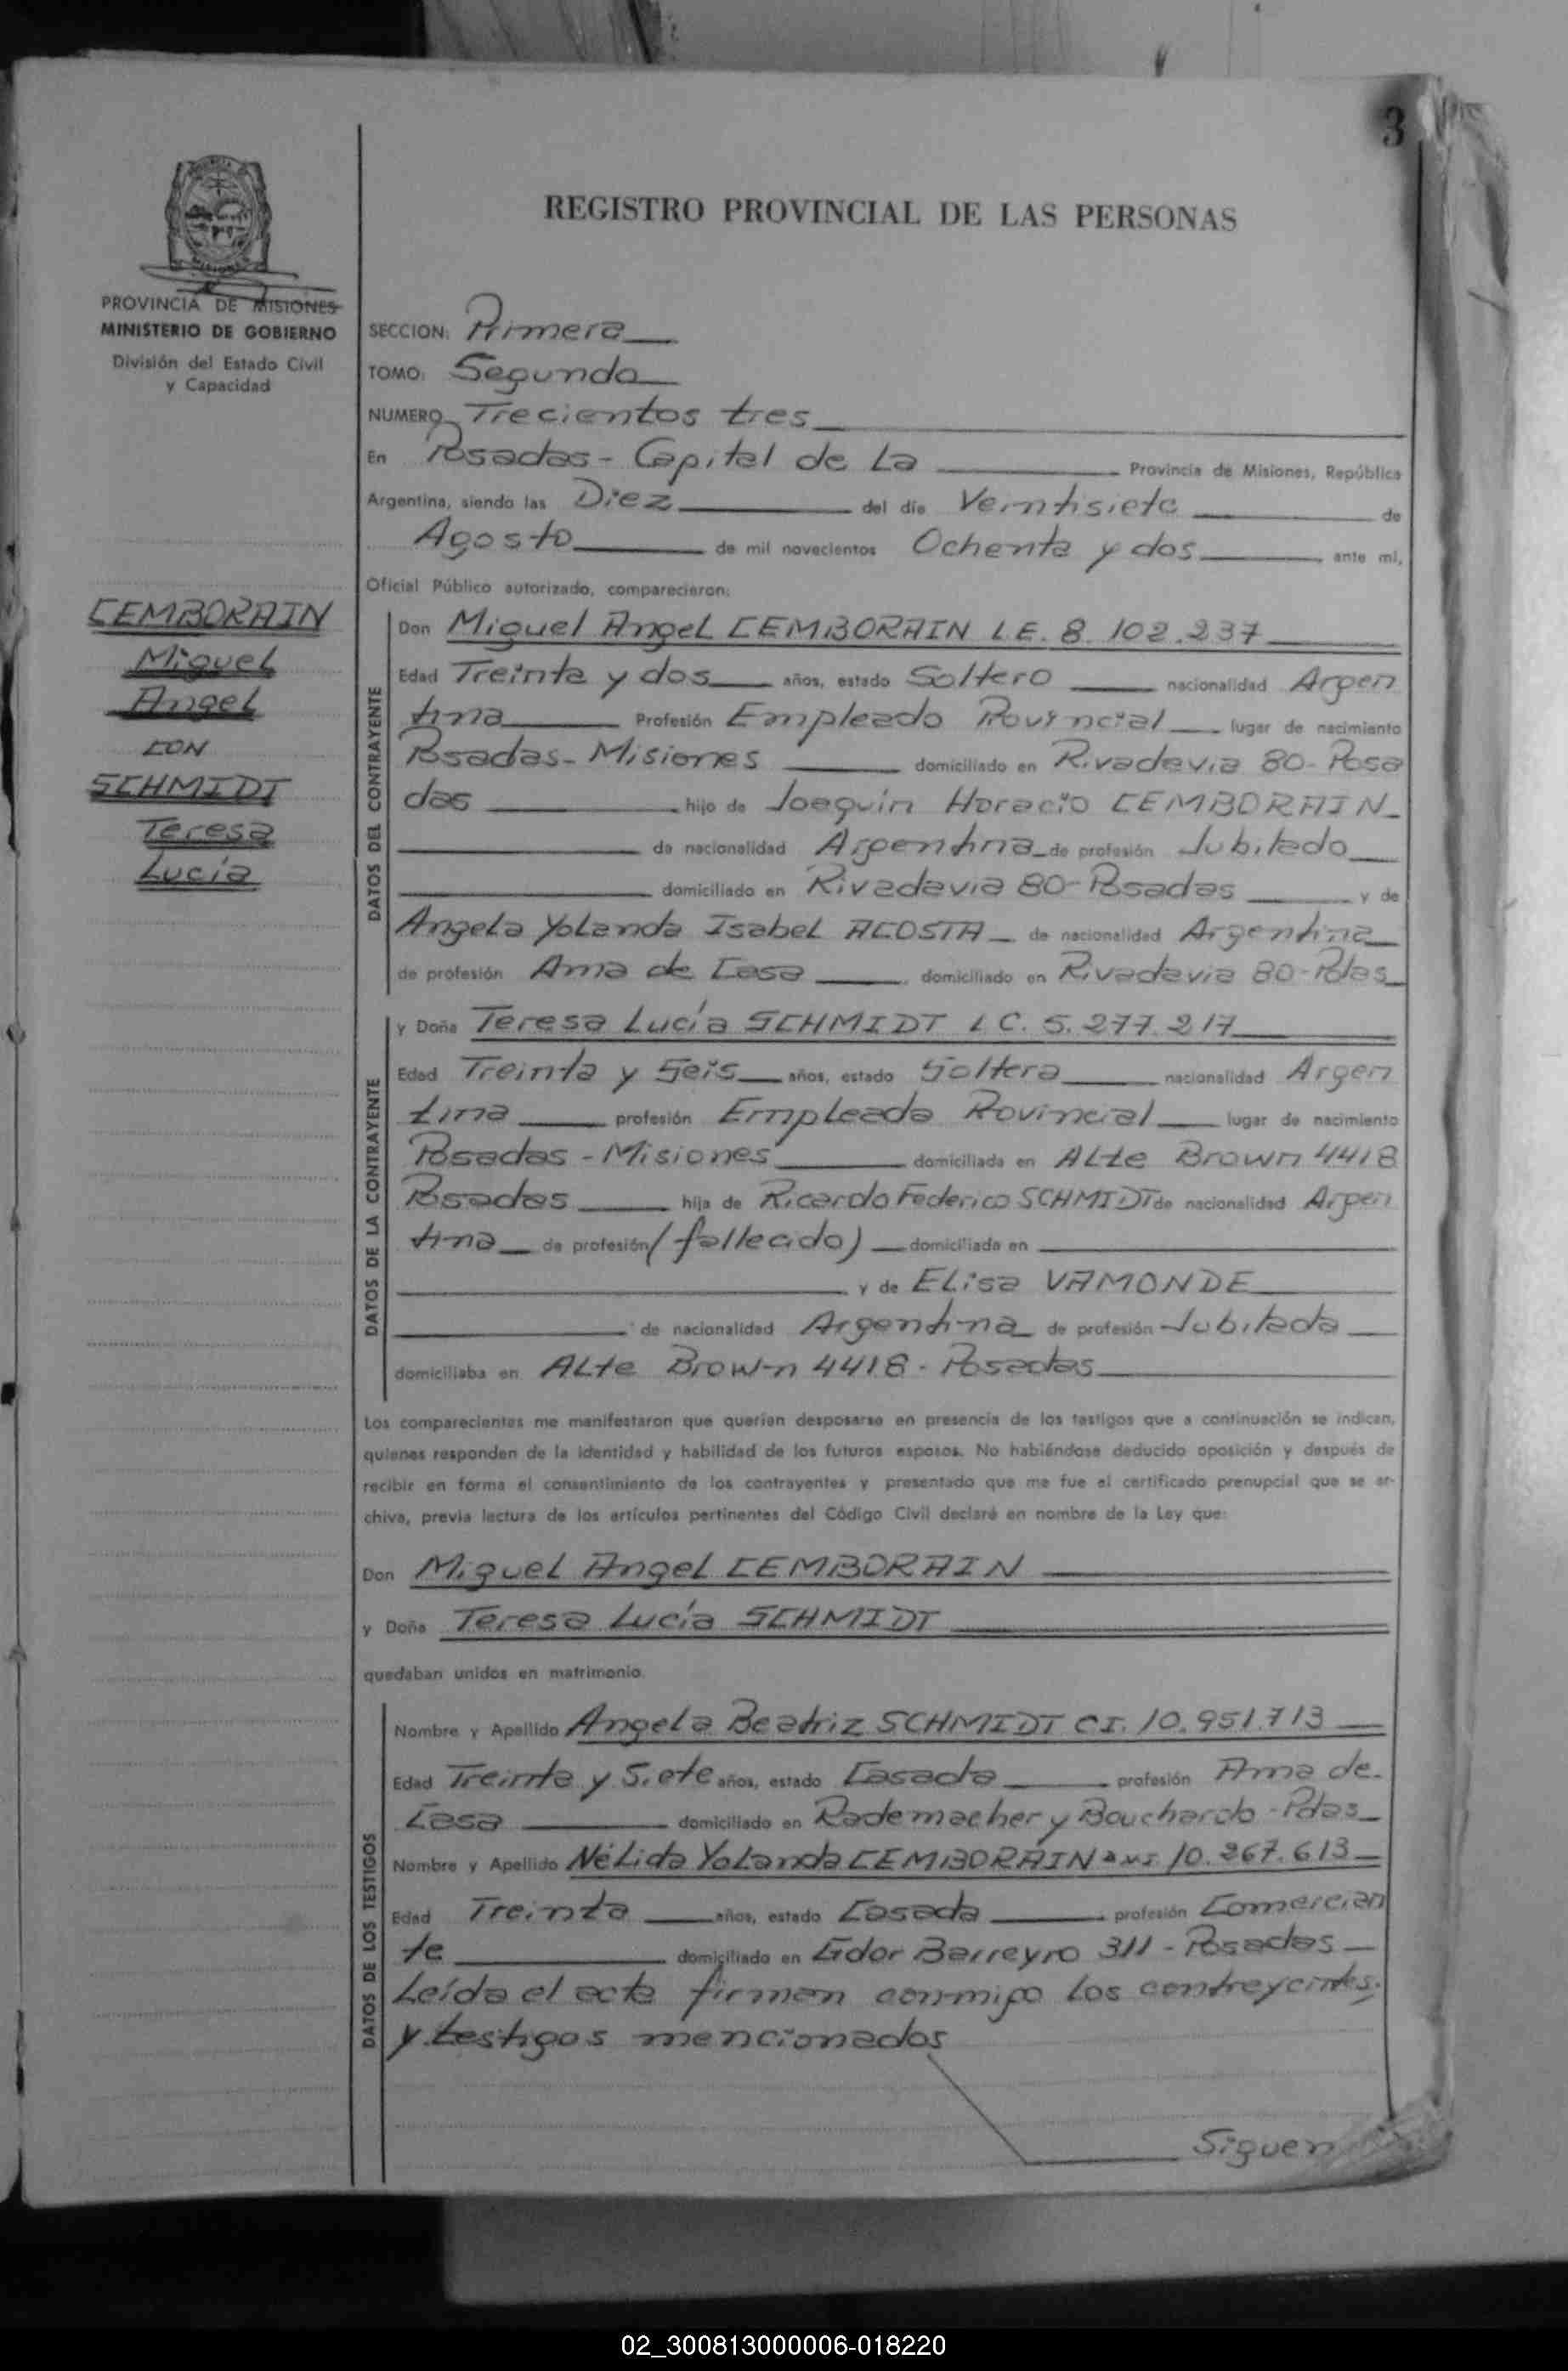 3
REGISTRO PROVINCIAL DE LAS PERSONAS
PROVINCIA DE MISIONES
MINISTERIO DE GOBIERNO
División del Estado Civil
y Capacidad
CEMBORAIN
Miguel
Angel
CON
SCHMIDT
Teresa
Lucía
SECCION: Primera
TOMO: Segundo
NUMERO Trecientos tres
En Posadas - Capital de La Provincia de Misiones, República
Argentina, siendo las Diez del día Veintisiete de
Agosto de mil novecientos Ochenta y dos ante mí,
Oficial Público autorizado, comparecieron:
DATOS DEL CONTRAYENTE
Don Miguel Angel CEMBORAIN L.E. 8.102.237
Edad Treinta y dos años, estado Soltero nacionalidad Argen
tina Profesión Empleado Provincial lugar de nacimiento
Posadas - Misiones domiciliado en Rivadavia 80 - Posa
das hijo de Joaquín Horacio CEMBORAIN
de nacionalidad Argentina de profesión Jubilado
domiciliado en Rivadavia 80 - Posadas y de
Angela Yolanda Isabel ACOSTA de nacionalidad Argentina
de profesión Ama de Casa domiciliado en Rivadavia 80 - Pdas
DATOS DE LA CONTRAYENTE
y Doña Teresa Lucía SCHMIDT L.C. 5.277.217
Edad Treinta y Seis años, estado Soltera nacionalidad Argen
tina profesión Empleada Provincial lugar de nacimiento
Posadas - Misiones domiciliada en ALte Brown 4418
Posadas hija de Ricardo Federico SCHMIDT de nacionalidad Argen
tina de profesión (fallecido) domiciliada en
y de ELisa VAMONDE
de nacionalidad Argentina de profesión Jubilada
domiciliaba en ALte Brown 4418 - Posadas
Los comparecientes me manifestaron que querían desposarse en presencia de los testigos que a continuación se indican,
quienes responden de la identidad y habilidad de los futuros esposos. No habiéndose deducido oposición y después de
recibir en forma el consentimiento de los contrayentes y presentado que me fue el certificado prenupcial que se ar-
chiva, previa lectura de los artículos pertinentes del Código Civil declaré en nombre de la Ley que:
Don Miguel Angel CEMBORAIN
y Doña Teresa Lucía SCHMIDT
quedaban unidos en matrimonio.
DATOS DE LOS TESTIGOS
Nombre y Apellido Angela Beatriz SCHMIDT C.I. 10.951.713
Edad Treinta y Siete años, estado Casada profesión Ama de
Casa domiciliado en Rademacher y Bouchardo - Pdas
Nombre y Apellido Nélida Yolanda CEMBORAIN 10.267.613
Edad Treinta años, estado Casada profesión Comercian
te domiciliado en Eidor Barreyro 311 - Posadas
Leída el acta firman conmigo los contrayentes
y testigos mencionados
Siguen
02_300813000006-018220